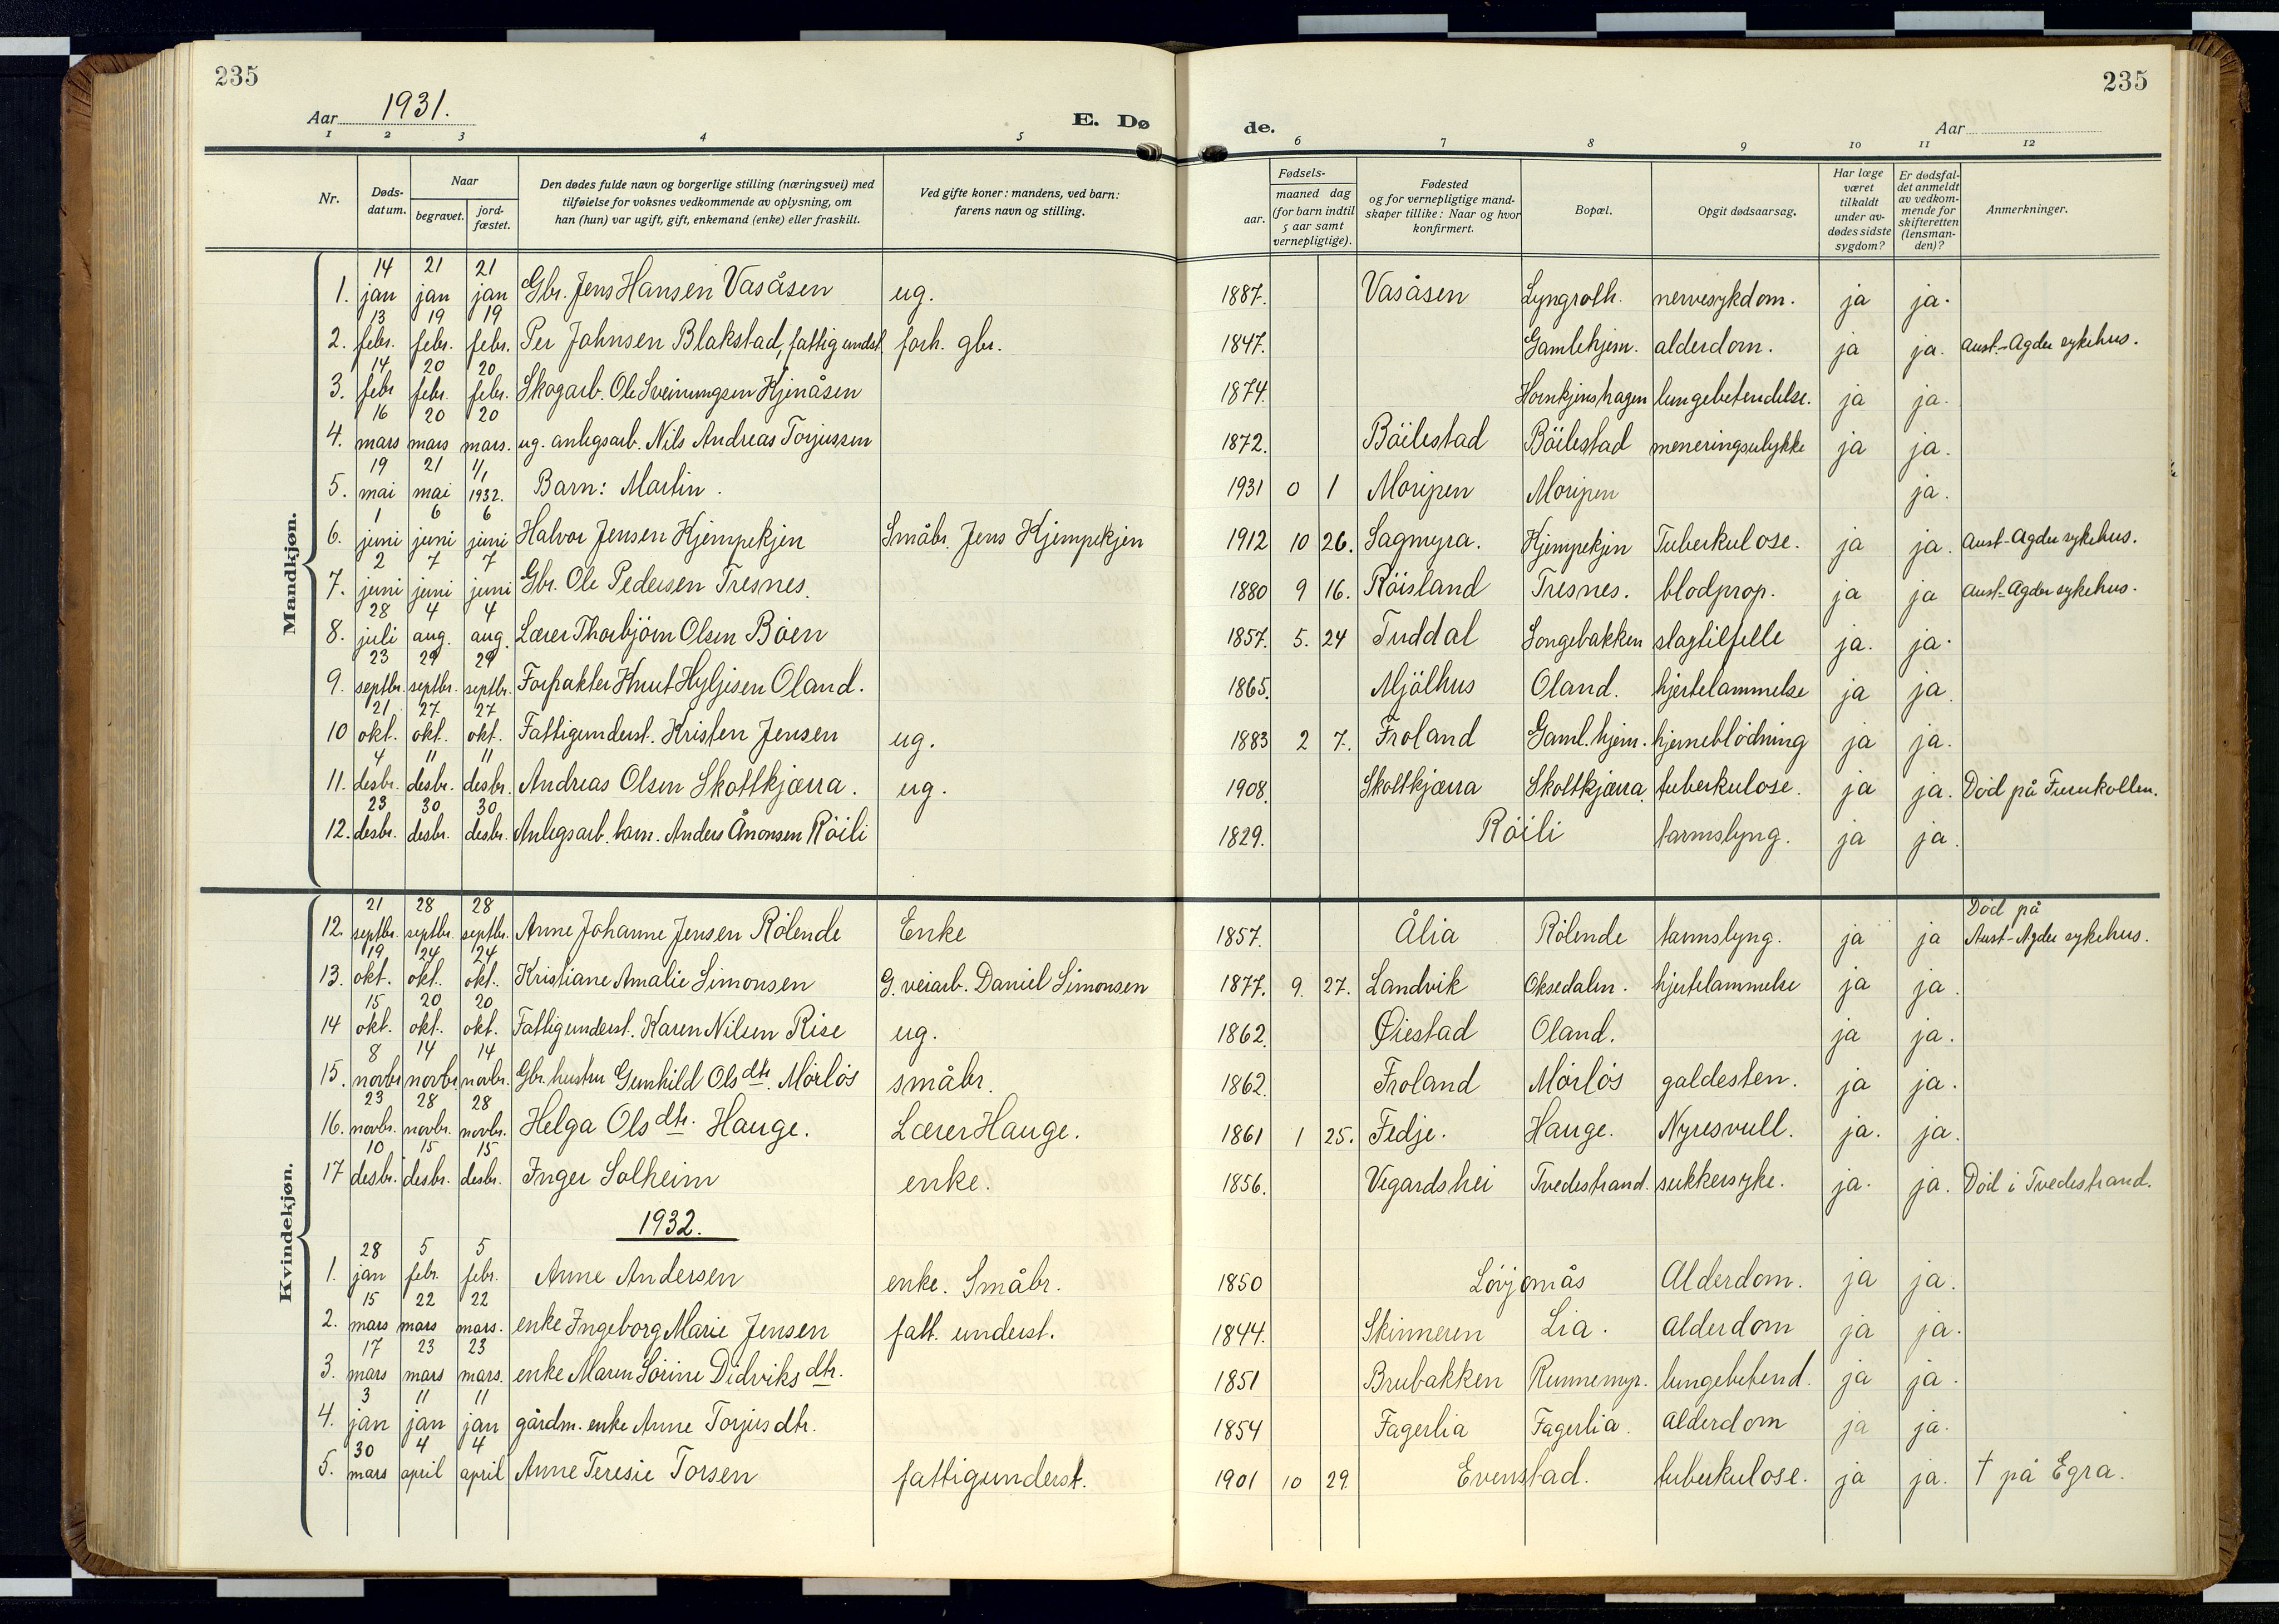 235
235
Aar 1931.
E. Dø
de.
Aar
1 2 3 4 5 6 7 8 9 10 11 12
Nr.
Døds-datum.
Naar
begravet.
jord-fæstet.
Den dødes fulde navn og borgerlige stilling (næringsvei) med
tilføielse for voksnes vedkommende av oplysning, om
han (hun) var ugift, gift, enkemand (enke) eller fraskilt.
Ved gifte koner: mandens, ved barn:
farens navn og stilling.
Fødsels-
aar.
maaned dag
(for barn indtil
5 aar samt
vernepligtige).
Fødested
og for vernepligtige mand-
skaper tillike: Naar og hvor
konfirmert.
Bopæl.
Opgit dødsaarsag.
Har læge
været
tilkaldt
under av-
dødes sidste
sygdom?
Er dødsfal-
det anmeldt
av vedkom-
mende for
skifteretten
(lensman-
den)?
Anmerkninger.
Mandkjøn.
1. 14 jan 21 jan 21 jan Gbr. Jens Hansen Vasåsen ug. 1887. Vasåsen Lyngroth. nervesykdom. ja ja.
2. 13 febr. 19 febr. 19 febr. Per Johnsen Blakstad, fattigundst. forh. gbr. 1847. Gamlehjem. alderdom. ja ja. Aust-Agder sykehus.
3. 14 febr 20 febr. 20 febr. Skogarb. Ole Sveinungsen Kjenåsen 1874. Hornkjenshagen lungebetendelse. ja ja.
4. 16 mars 20 mars 20 mars. ug. anlegsarb. Nils Andreas Torjussen 1872. Böilestad Böilestad meneringsulykke ja ja.
5. 19 mai 21 mai 1/1 1932. Barn: Martin. 1931 0 1 Moripen Moripen ja.
6. 1 juni 6 juni 6 juni Halvor Jensen Kjempekjen Småbr. Jens Kjempekjen 1912 10 26. Sagmyra. Kjempekjen Tuberkulose. ja ja. Aust-Agder sykehus.
7. 2 juni 7 juni 7 juni Gbr. Ole Pedersen Tresnes. 1880 9 16. Röisland Tresnes. blodprop. ja ja Aust-Agder sykehus.
8. 28 juli 4 aug. 4 aug. Lærer Thorbjörn Olsen Böen 1857. 5. 24 Tuddal Songebakken slagtilfelle ja. ja.
9. 23 septbr. 29 septbr. 29 septbr. Forpakter Knut Hyljesen Oland. 1865. Mjölhus Oland. hjertelammelse ja ja.
10 21 okt. 27 okt. 27 okt. Fattigunderst. Kristen Jensen ug. 1883 2 7. Froland Gaml.hjem. hjerneblödning ja ja.
11. 4 desbr. 11 desbr. 11 desbr. Andreas Olsen Skottkjærra. ug. 1908. Skoltkjærra Skoltkjærra. tuberkulose. ja ja. Död på Furukollen.
12. 23 desbr. 30 desbr. 30 desbr. Anlegsarb. barn. Anders Ånonsen Röili 1829. Röili tarmslyng. ja ja.
Kvindekjøn.
12. 21 septbr. 28 septbr. 28 septbr. Anne Johanne Jensen Rölende Enke 1857. Ålia Rölende tarmslyng. ja ja Död på Aust-Agder sykehus.
13. 19 okt. 24 okt. 24 okt. Kristiane Amalie Simonsen G. veiarb. Daniel Simonsen 1877. 9. 27. Landvik Oksedalen. hjertelammelse ja ja.
14 15 okt. 20 okt. 20 okt. Fattigunderst. Karen Nilsen Rise ug. 1862. Øiestad Oland. ja ja.
15. 8 novbr 14 novbr 14 novbr. Gbr. hustru Gunhild Olsdtr. Mörlös småbr. 1862. Froland Mörlös galdesten. ja ja.
16. 23 novbr. 28 novbr. 28 novbr. Helga Olsdtr. Hauge. Lærer Hauge. 1861 1 25. Fedje. Hauge. Nyresvull. ja. ja.
17 10 desbr. 15 desbr. 15 desbr. Inger Solheim enke. 1856. Vegardshei Tvedestrand. sukkersyke. ja. ja. Död i Tvedestrand.
1932.
1. 28 jan 5 febr. 5 febr. Anne Andersen enke. Småbr. 1850 Alderdom. ja ja.
2. 15 mars 22 mars 22 mars. enke Ingeborg Marie Jensen fatt. underst. 1844. Skinneren Lia. Alderdom ja ja.
3. 17 mars 23 mars 23 mars. enke Maren Sörine Didviksdtr. 1851 Brubakken Runnemyr. lungebetend. ja ja.
4. 3 jan 11 jan 11 jan gårdm. enke Anne Torjusdtr. 1854 Fagerlia Fagerlia. Alderdom ja ja.
5. 30 mars 4 april 4 april Anne Teresie Torsen fattigunderst. 1901 10 29. Evenstad. tuberkulose. ja ja. † på Egra.